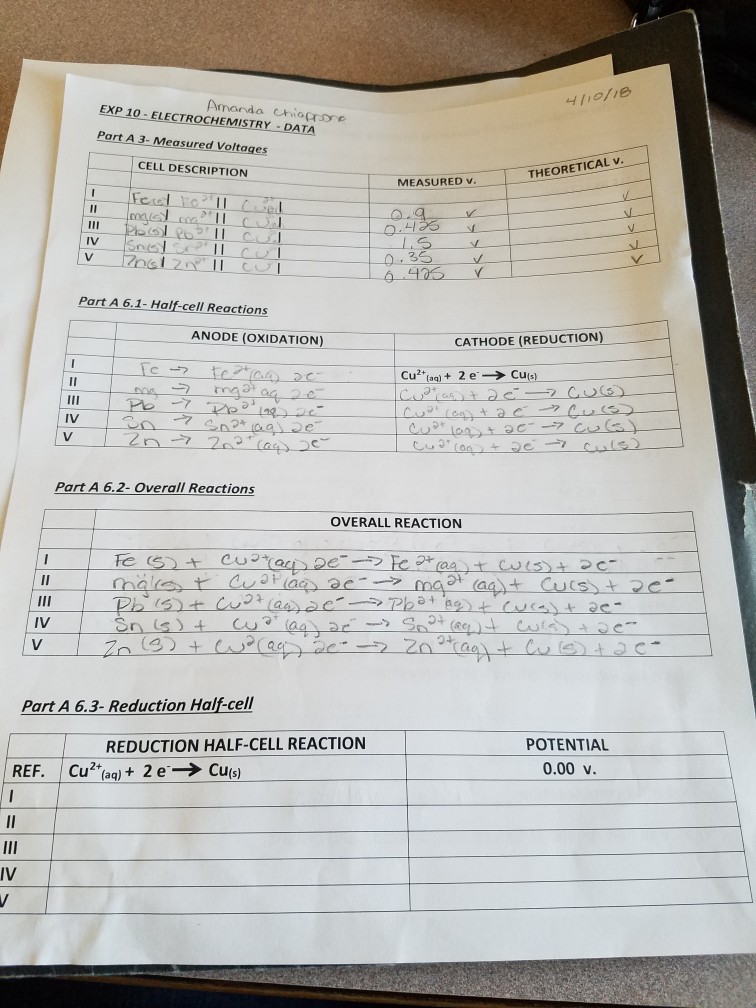 Amanda Chiaprone
4/10/18
EXP 10 - ELECTROCHEMISTRY - DATA
Part A 3- Measured Voltages
CELL DESCRIPTION MEASURED v. THEORETICAL v.
I Fe(s)| || 0.9 v v
II mg(s)| mg²⁺ || Cu 0.425 v v
III Pb(s)| Pb²⁺ || Cu 1.5 v v
IV Sn(s)| Sn²⁺ || Cu | 0.35 v v
V Zn(s)| Zn²⁺ || Cu | 0.475 v v
Part A 6.1- Half-cell Reactions
ANODE (OXIDATION) CATHODE (REDUCTION)
I Fe → Fe²⁺(aq) 2e⁻ Cu²⁺(aq) + 2 e⁻ → Cu(s)
II mg → mg²⁺ aq 2e⁻ Cu²⁺(aq) + 2e⁻ → Cu(s)
III Pb → Pb²⁺(aq) 2e⁻ Cu²⁺(aq) + 2e⁻ → Cu(s)
IV Sn → Sn²⁺(aq) 2e⁻ Cu²⁺(aq) + 2e⁻ → Cu(s)
V Zn → Zn²⁺(aq) 2e⁻ Cu²⁺(aq) + 2e⁻ → Cu(s)
Part A 6.2- Overall Reactions
OVERALL REACTION
I Fe (s) + Cu²⁺(aq) 2e⁻ → Fe²⁺(aq) + Cu(s) + 2e⁻
II mg(s) + Cu²⁺(aq) 2e⁻ → mg²⁺(aq) + Cu(s) + 2e⁻
III Pb (s) + Cu²⁺(aq) 2e⁻ → Pb²⁺(aq) + Cu(s) + 2e⁻
IV Sn (s) + Cu²⁺(aq) 2e⁻ → Sn²⁺(aq) + Cu(s) + 2e⁻
V Zn (s) + Cu²(aq) 2e⁻ → Zn²⁺(aq) + Cu(s) + 2e⁻
Part A 6.3- Reduction Half-cell
REDUCTION HALF-CELL REACTION POTENTIAL
REF. Cu²⁺(aq) + 2 e⁻ → Cu(s) 0.00 v.
I
II
III
IV
V